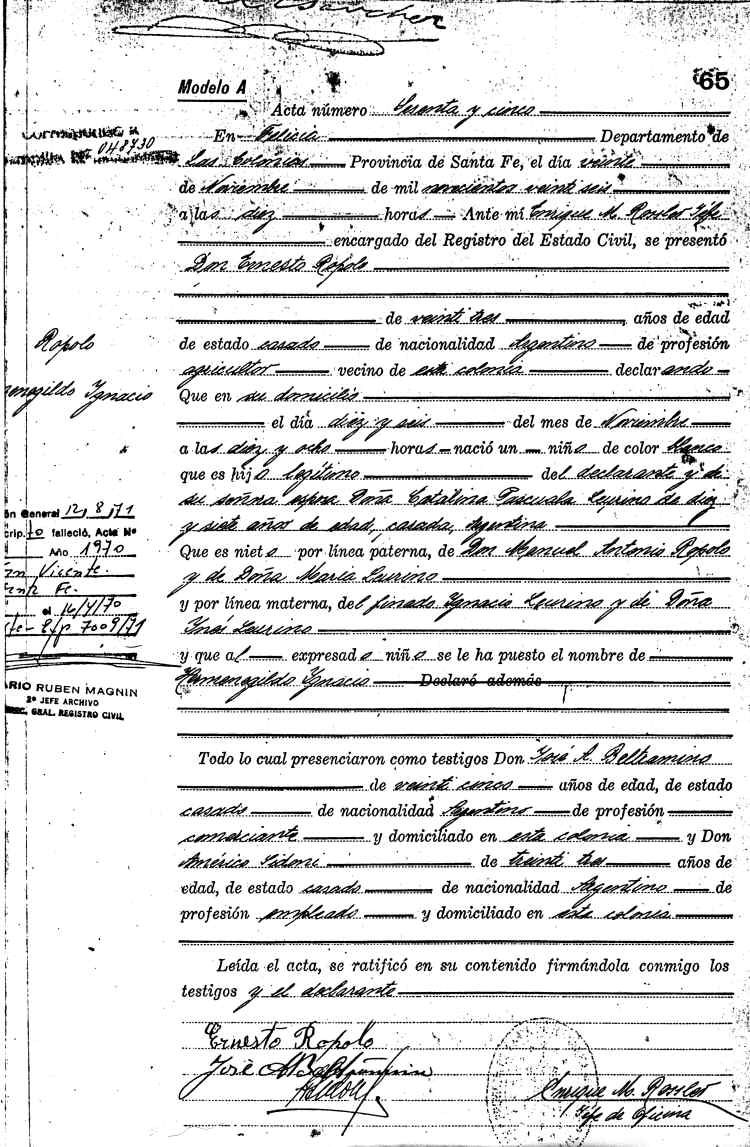 65
Modelo A
Acta número Sesenta y cinco
En Felicia Departamento de
048730
Las Colonias Provincia de Santa Fe, el día veinte
de Noviembre de mil novecientos veinte seis
a las diez horas Ante mí Enrique M. Rossler Jefe
encargado del Registro del Estado Civil, se presentó
Don Ernesto Ropolo
de veinti tres años de edad
Ropolo
de estado casado de nacionalidad Argentino de profesión
agricultor vecino de esta colonia declarando
Ignacio
Que en su domicilio
el día diez y seis del mes de Noviembre
a las diez y ocho horas nació un niño de color blanco
que es hijo legítimo del declarante y de
su señora esposa Doña Catalina Pascuala Laurino de diez
y siete años de edad, casada, Argentina
Que es nieto por línea paterna, de Don Manuel Antonio Ropolo
y de Doña María Laurino
y por línea materna, del finado Ignacio Laurino y de Doña
Inés Laurino
ón General 12/8/71
crip. 70 falleció, Acta Nº
Año 1970
San Vicente
Santa Fe
el 14/4/70
7009/71
y que al expresado niño se le ha puesto el nombre de
Hermenegildo Ignacio Declaró además
ARIO RUBEN MAGNIN
2º JEFE ARCHIVO
GRAL. REGISTRO CIVIL
Todo lo cual presenciaron como testigos Don José A. Beltramino
de veinti cinco años de edad, de estado
casado de nacionalidad Argentino de profesión
comerciante y domiciliado en esta colonia y Don
Américo Sidoni de treinta tres años de
edad, de estado casado de nacionalidad Argentino de
profesión empleado y domiciliado en esta colonia
Leída el acta, se ratificó en su contenido firmándola conmigo los
testigos y el declarante
Ernesto Ropolo
José A Beltramino
Enrique M. Rossler
Jefe de Oficina